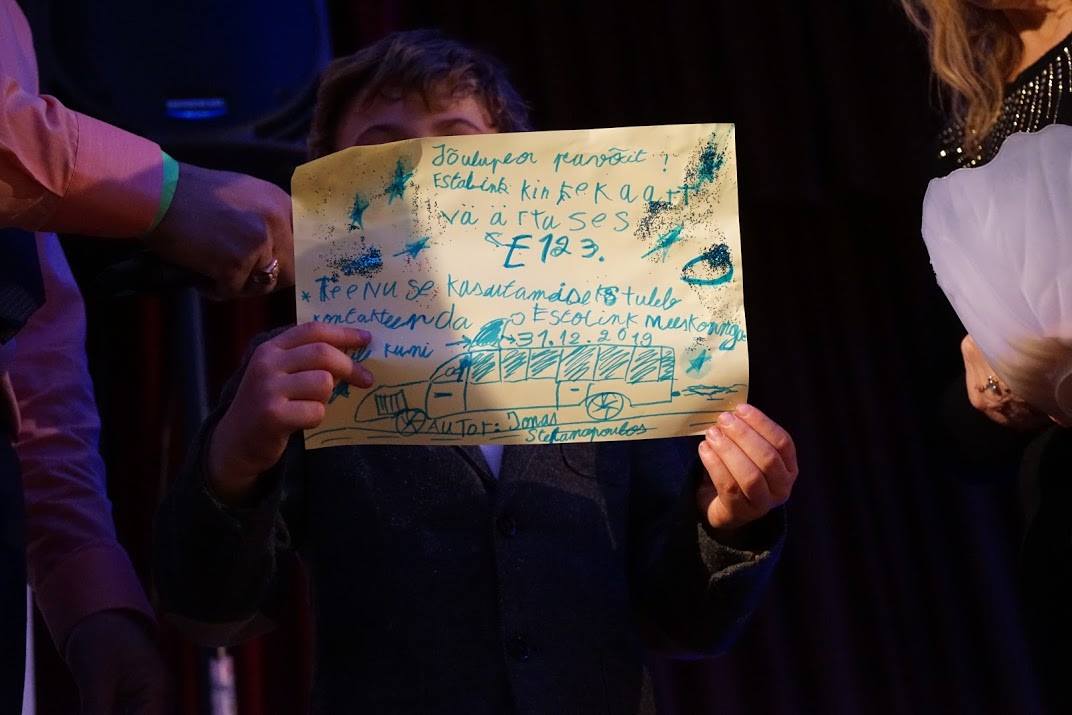 Jõulupeo favoriit!
Estolink kinkekaart
väärtuses
€123.
* Teenuse kasutamiseks tuleb
kontakteeruda Estolink meeskonnga
kuni → 31.12.2019
AUTOR: Jonas
Stefanopoulos